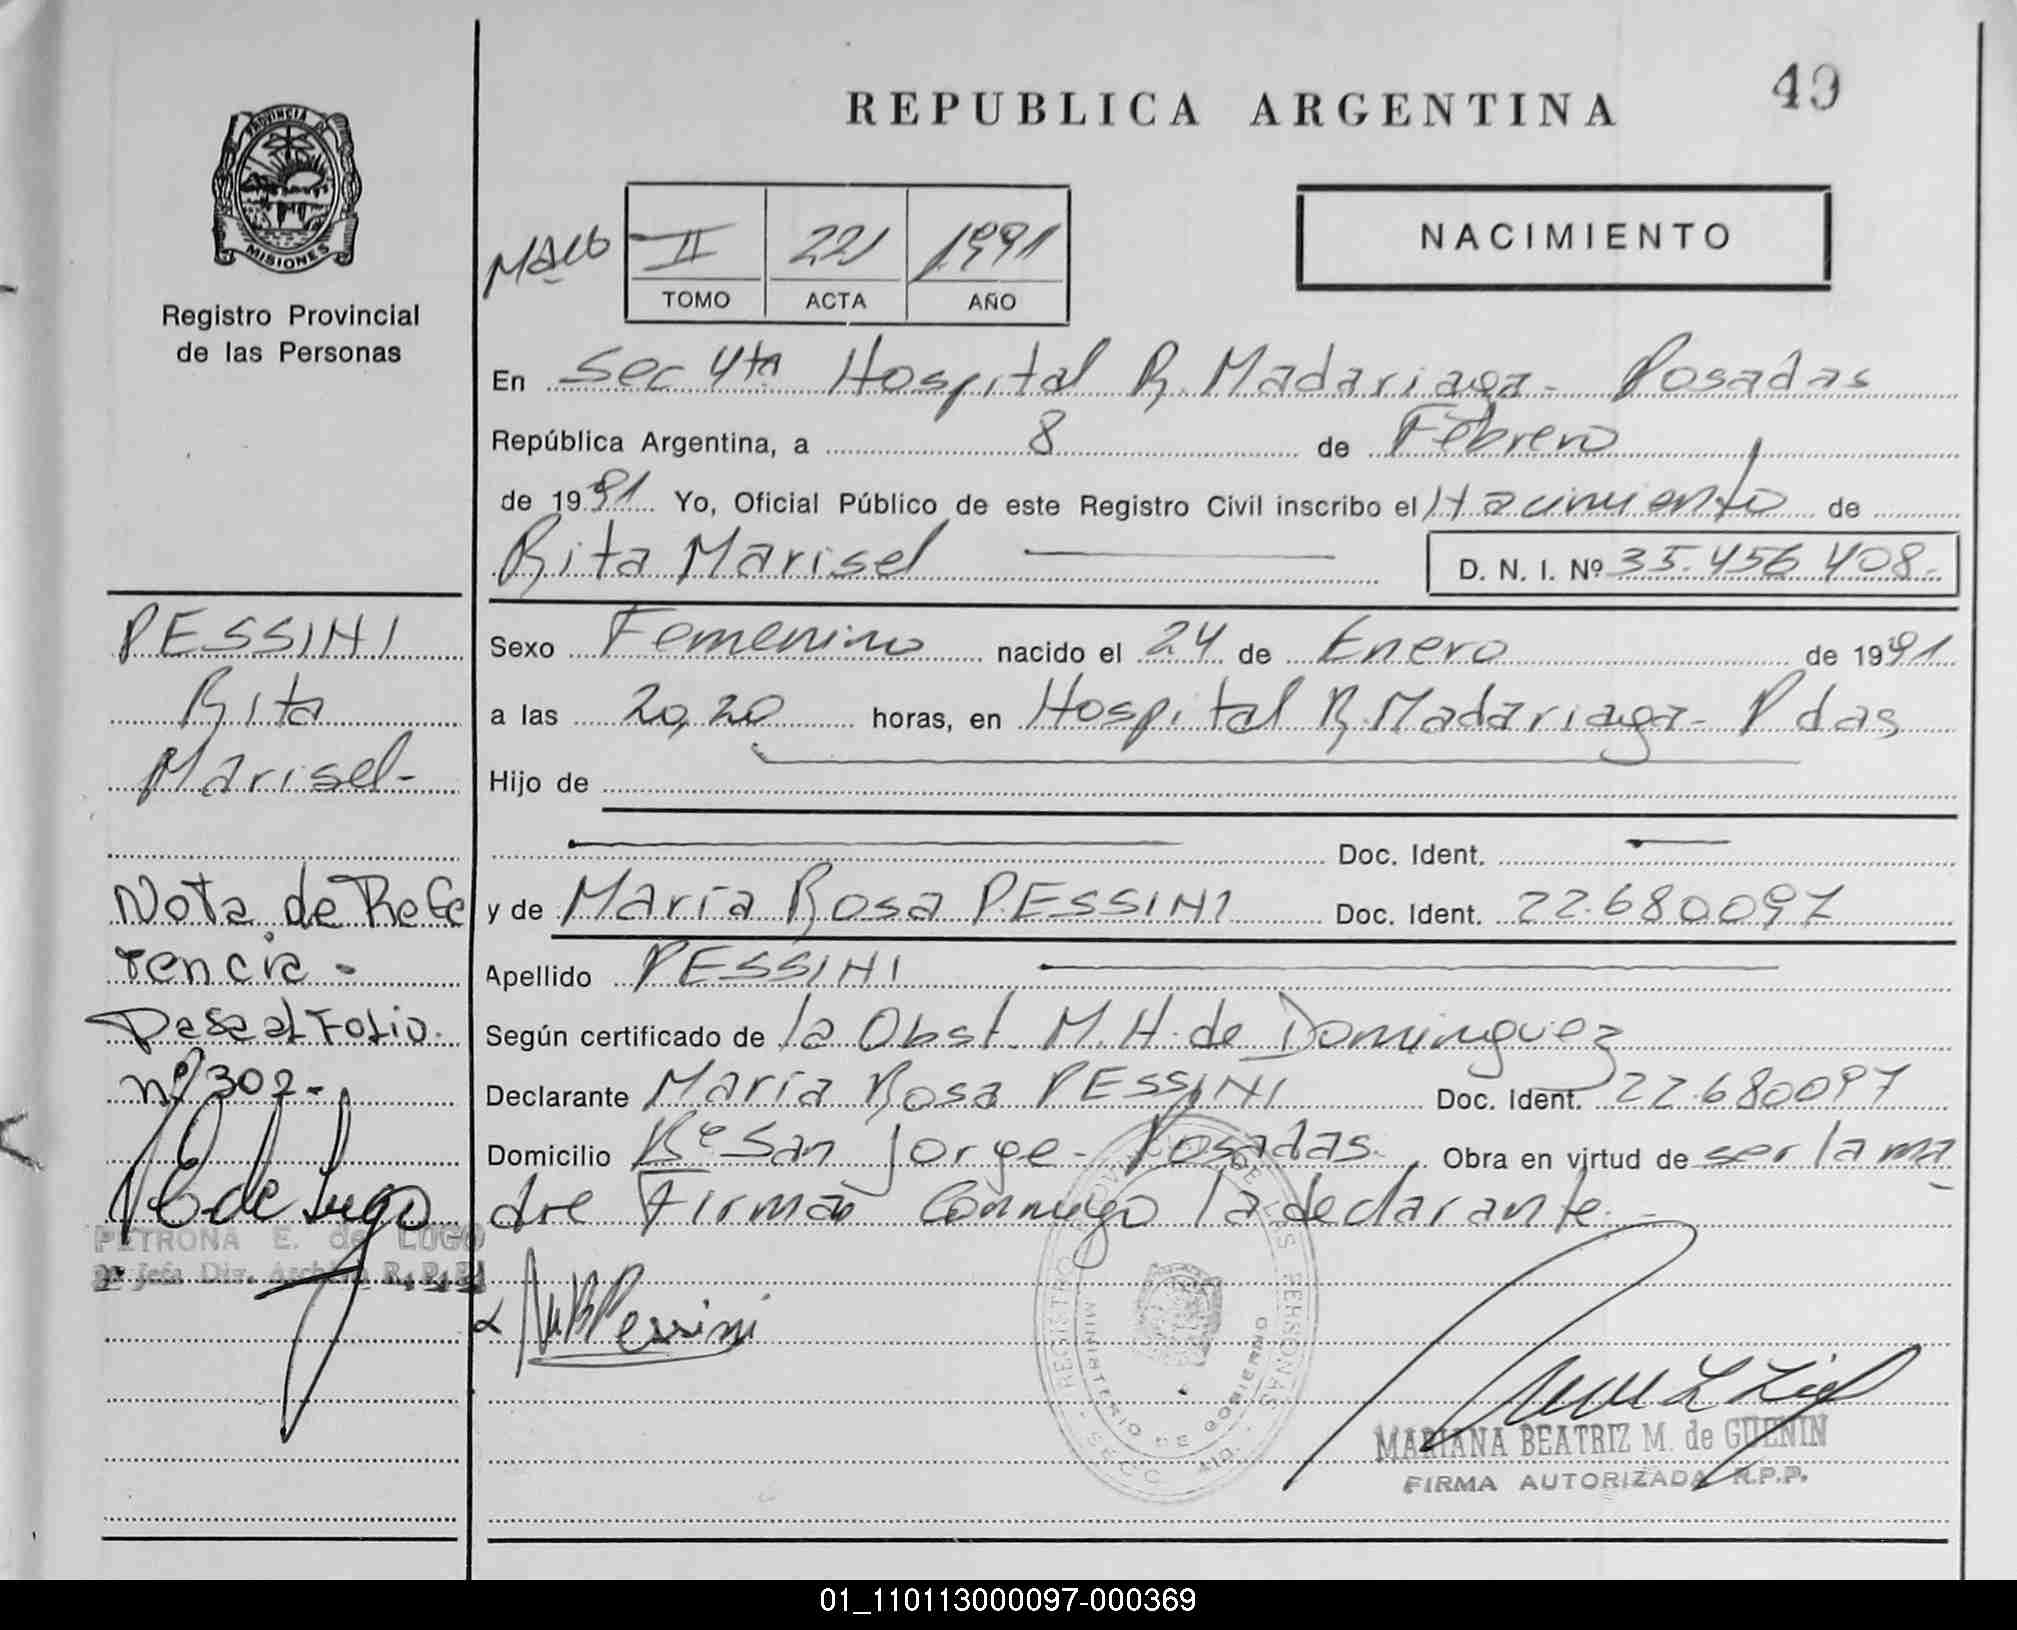 REPUBLICA ARGENTINA
49
PROVINCIA DE
MISIONES
Registro Provincial
de las Personas
II 221 1991
TOMO ACTA AÑO
NACIMIENTO
En Sec 4ta Hospital R. Madariaga - Posadas
República Argentina, a 8 de Febrero
de 1991 Yo, Oficial Público de este Registro Civil inscribo el Nacimiento de
Rita Marisel
D. N. I. Nº 35.456 408.-
PESSINI
Rita
Marisel-
Sexo Femenino nacido el 24 de Enero de 1991
a las 20,20 horas, en Hospital R. Madariaga - Pdas
Hijo de
Doc. Ident.
y de María Rosa PESSINI Doc. Ident. 22.680097
Apellido PESSINI
Según certificado de la Obst. M. H. de Dominguez
Declarante María Rosa PESSINI Doc. Ident. 22.680097
Domicilio Bº San Jorge - Posadas. Obra en virtud de ser la ma
dre Firman Conmigo la declarante.-
Nota de Refe
rencia -
Pase al Folio.
nº 302-
PETRONA E. de LUGO
Jefa Div. Archivo R.P.P.
MRPessini
REGISTRO DE LAS PERSONAS
MINISTERIO DE GOBIERNO
MARIANA BEATRIZ M. de GUENIN
FIRMA AUTORIZADA R.P.P.
01_110113000097-000369